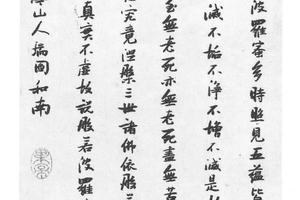 波羅蜜多時照見五蘊皆
滅不垢不淨不增不減是
至無老死亦無老死盡無苦
究竟涅槃三世諸佛依般
真實不虛故說般若波羅
山人和南